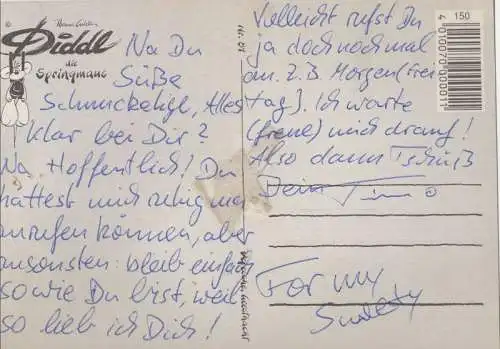 Diddl
die
Springmaus
Na Du
Süße
Schnuckelige, Alles
klar bei Dir?
Na Hoffentlich! Du
hattest mich ruhig mal
anrufen können, aber
ansonsten bleib einfach
so wie Du bist, weil
so lieb ich Dich!
Vielleicht rufst Du
ja doch noch mal
an. Z.B. Morgen (Frei
tag). Ich warte
(freue) mich drauf!
Also dann Tschüß
Dein Timo
For my
150
4 010070 000011